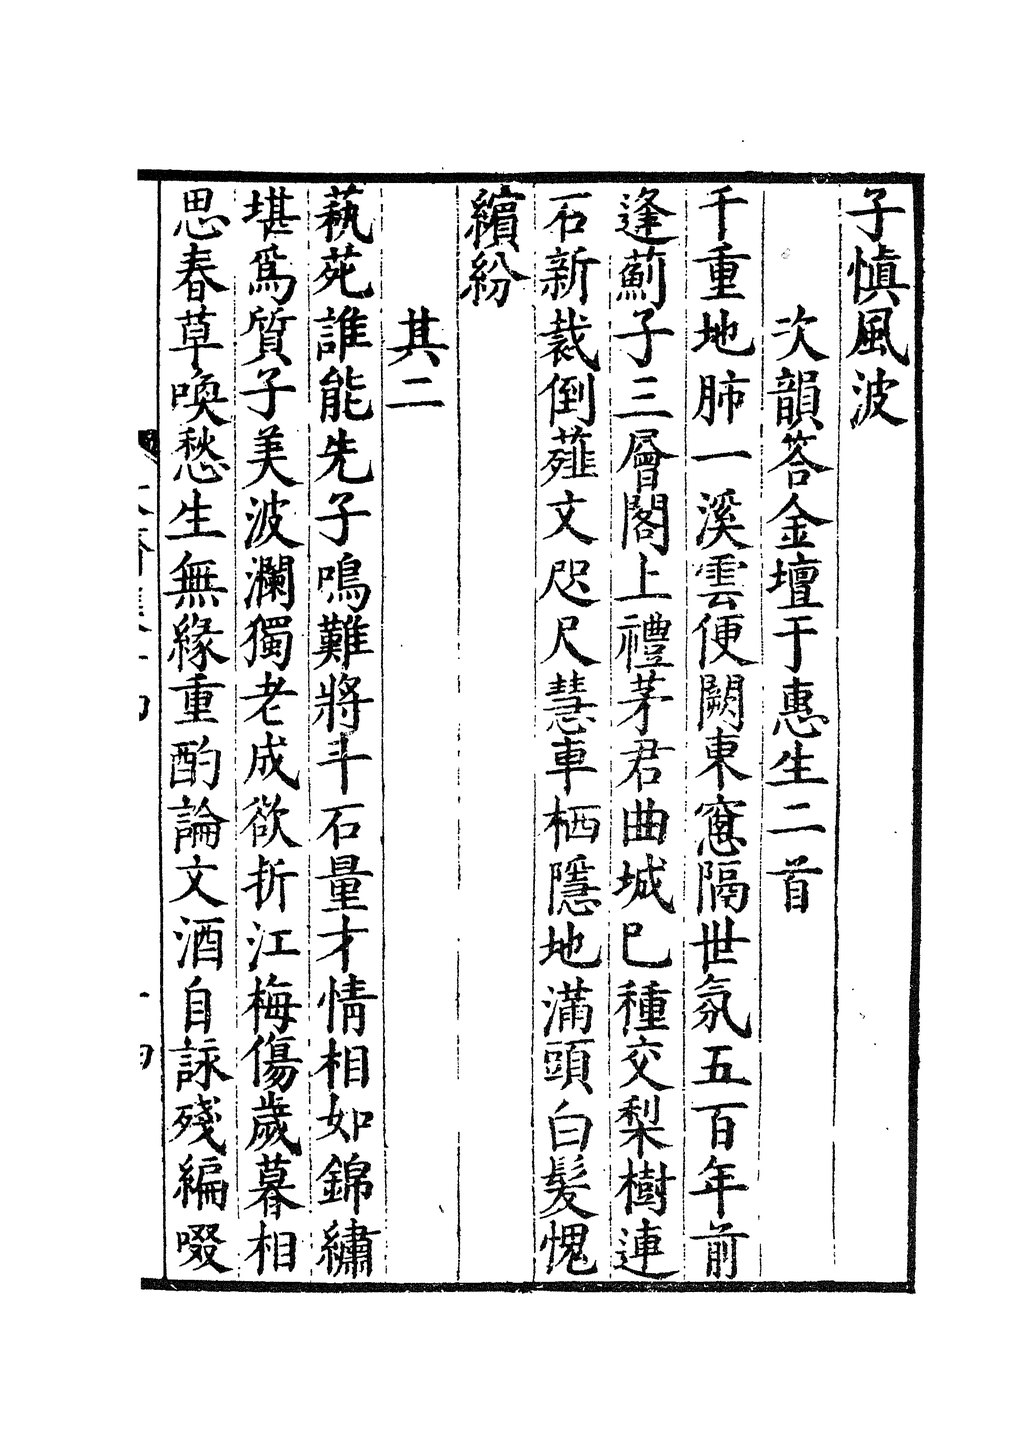 子慎風波
次韻答金壇于惠生二首
千重地肺一溪雲便闕東窻隔世氛五百年前
逢薊子三層閣上禮茅君曲城巳種交梨樹連
石新裁倒薤文咫尺慧車栖隱地滿頭白髮愧
繽紛
其二
蓺苑誰能先子鳴難將斗石量才情相如錦繡
堪爲質子美波瀾獨老成欲折江梅傷歲暮相
思春草喚愁生無緣重酌論文酒自詠殘編啜